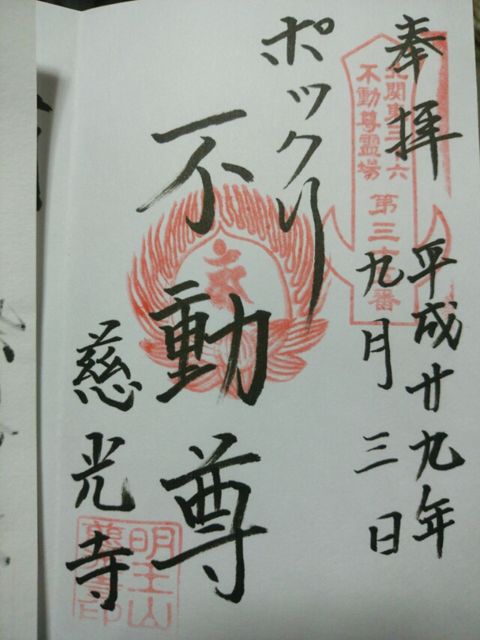 奉拝
平成廿九年
九月三日
北関東三十六
不動尊霊場
第三
番
ポックリ
不動尊
慈光寺
明王山
慈光寺印